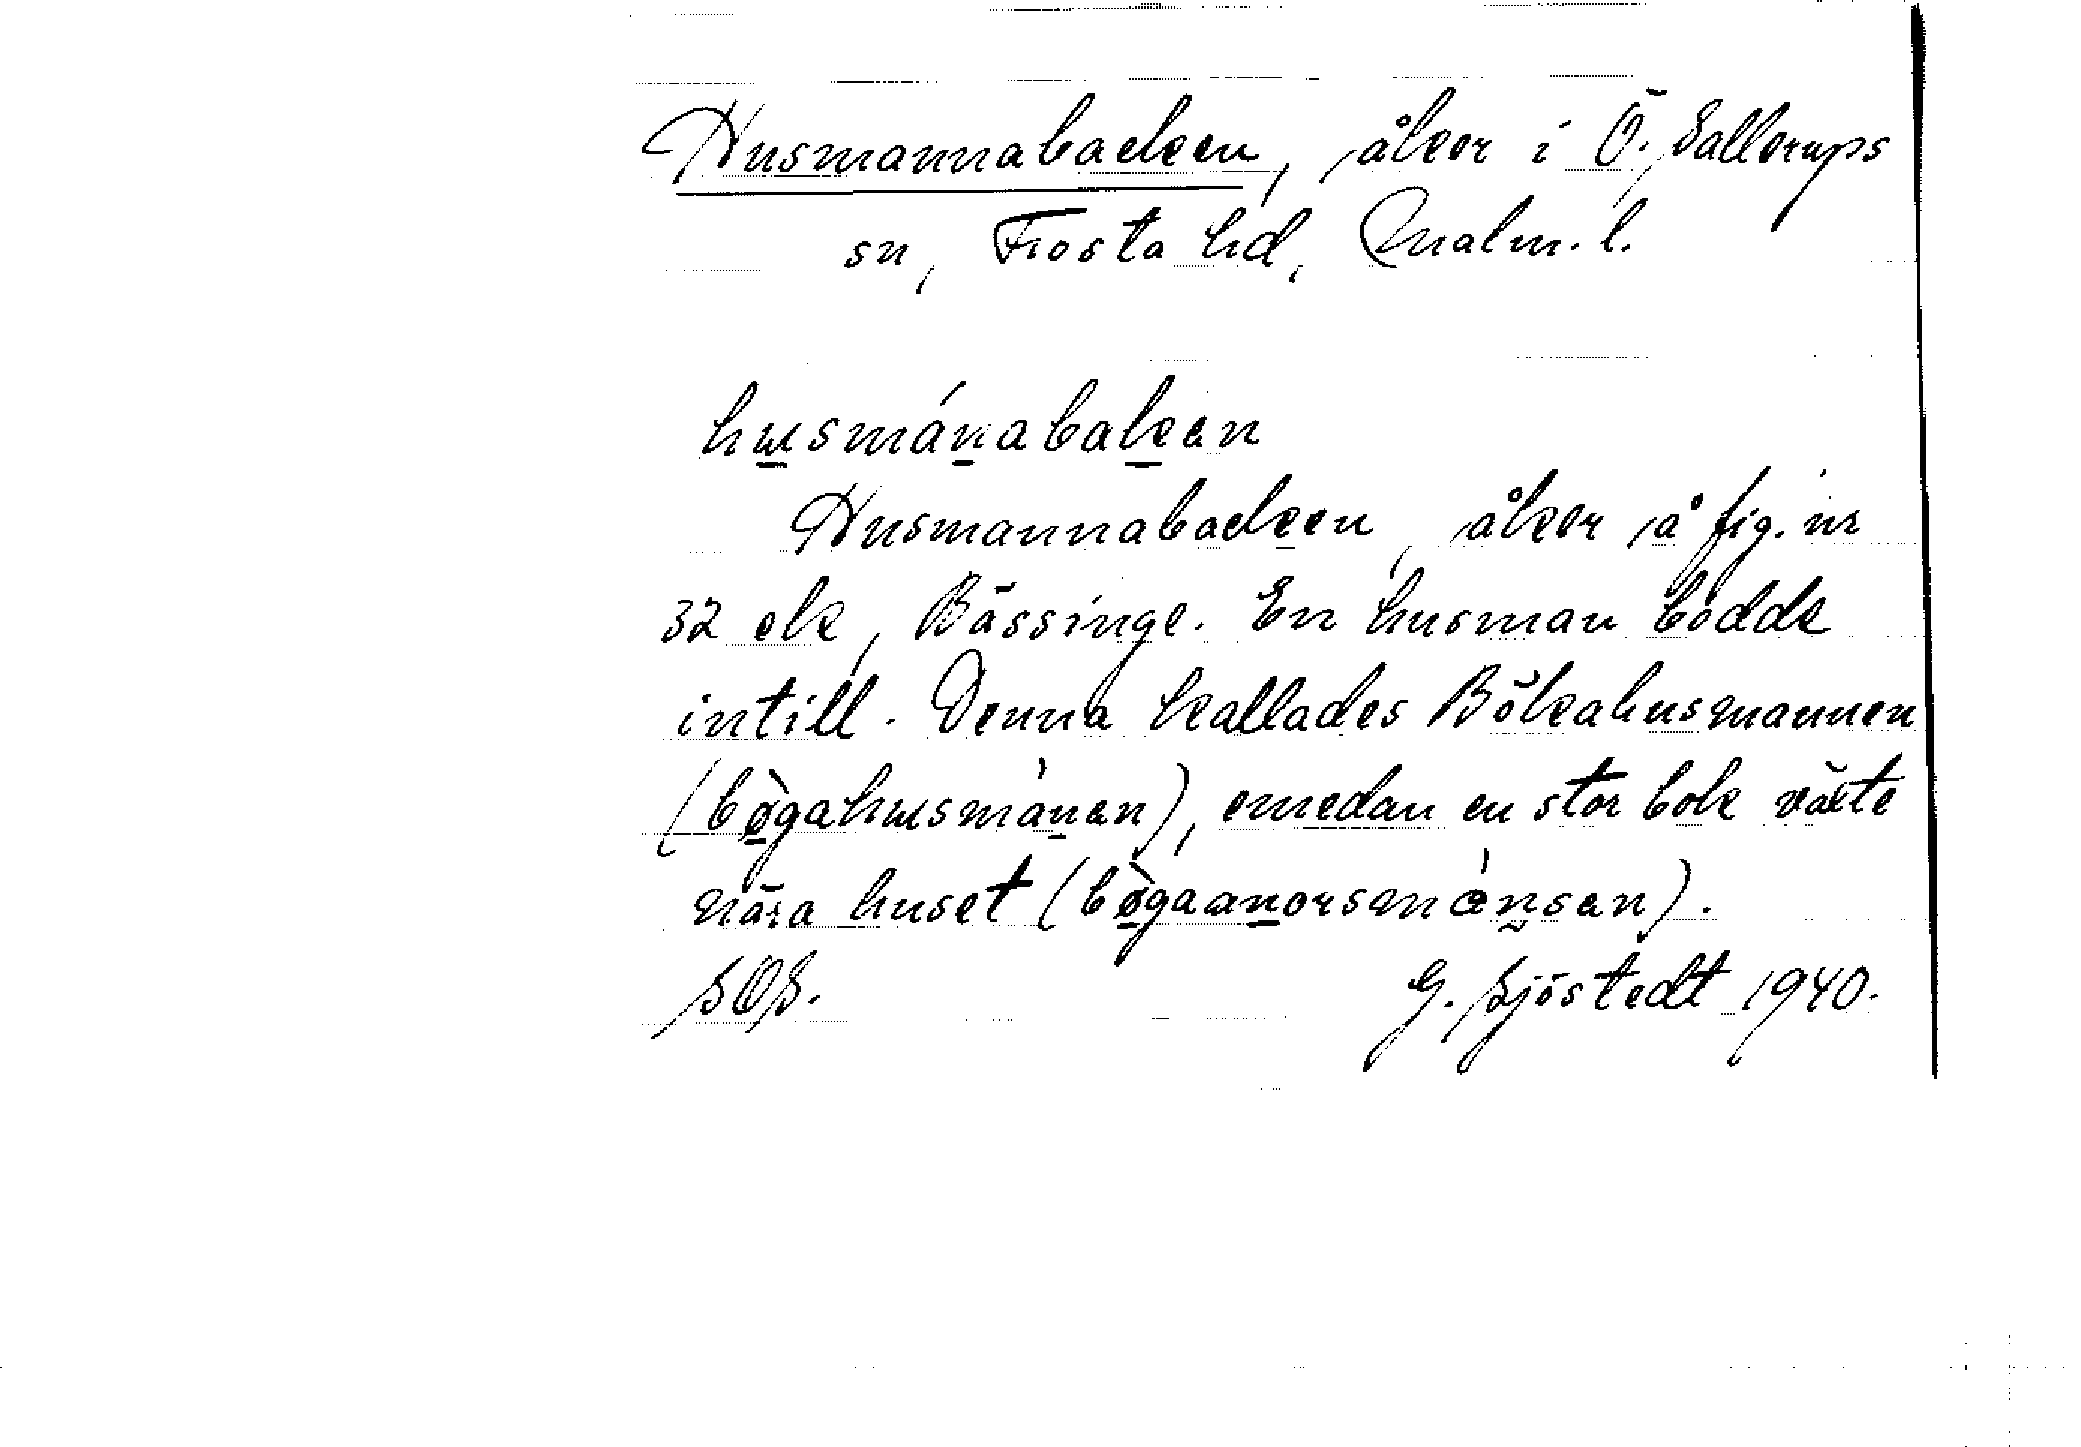 Husmannabacken, åker i Ö. Sallerups
sn, Frosta hd, Malm. l.
husmánabakan
Husmannabacken, åker å fig. nr
32 ek, Bässinge. En husman bodde
intill. Denna kallades Bökahusmannen
(bø̀gahusmànan), emedan en stor bok växte
nära huset (bø̀gaanorsmæ̀nsan).
SOS. G. Sjöstedt 1940.